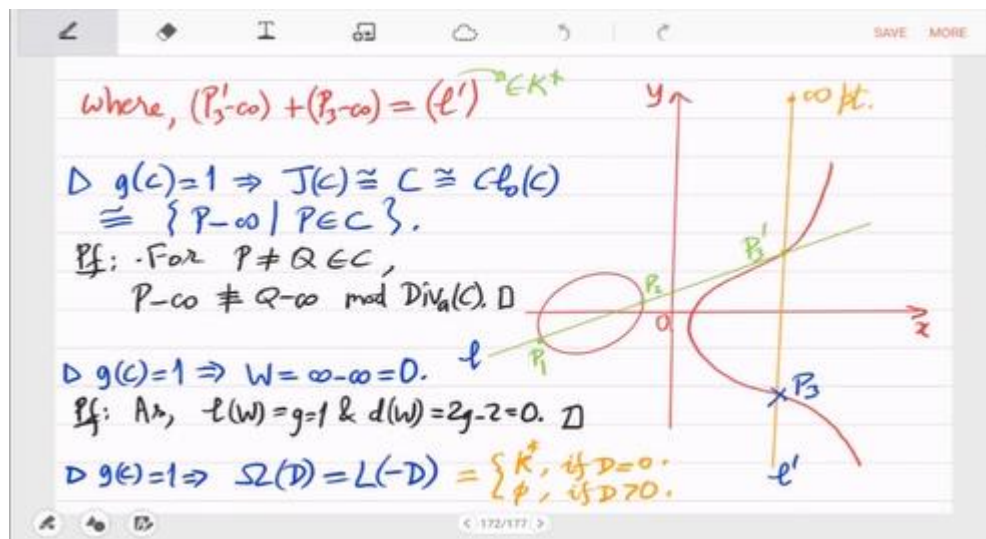 SAVE MORE
where, (P₃'-∞) + (P₃-∞) = (ℓ') → ∈K*
▷ g(C)=1 ⇒ J(C) ≅ C ≅ Cl₀(C)
≅ { P-∞ | P∈C }.
Pf: -For P ≠ Q ∈C,
P-∞ ≢ Q-∞ mod Divₐ(C). □
▷ g(C)=1 ⇒ W = ∞-∞ = 0.
Pf: As, ℓ(W) = g=1 & d(W) = 2g-2=0. □
▷ g(C)=1 ⇒ Ω(D) = L(-D) = { K*, if D=0.
ϕ, if D>0.
y
∞ pt.
P₃'
P₂
0
x
P₁
ℓ
P₃
ℓ'
< 172/177 >